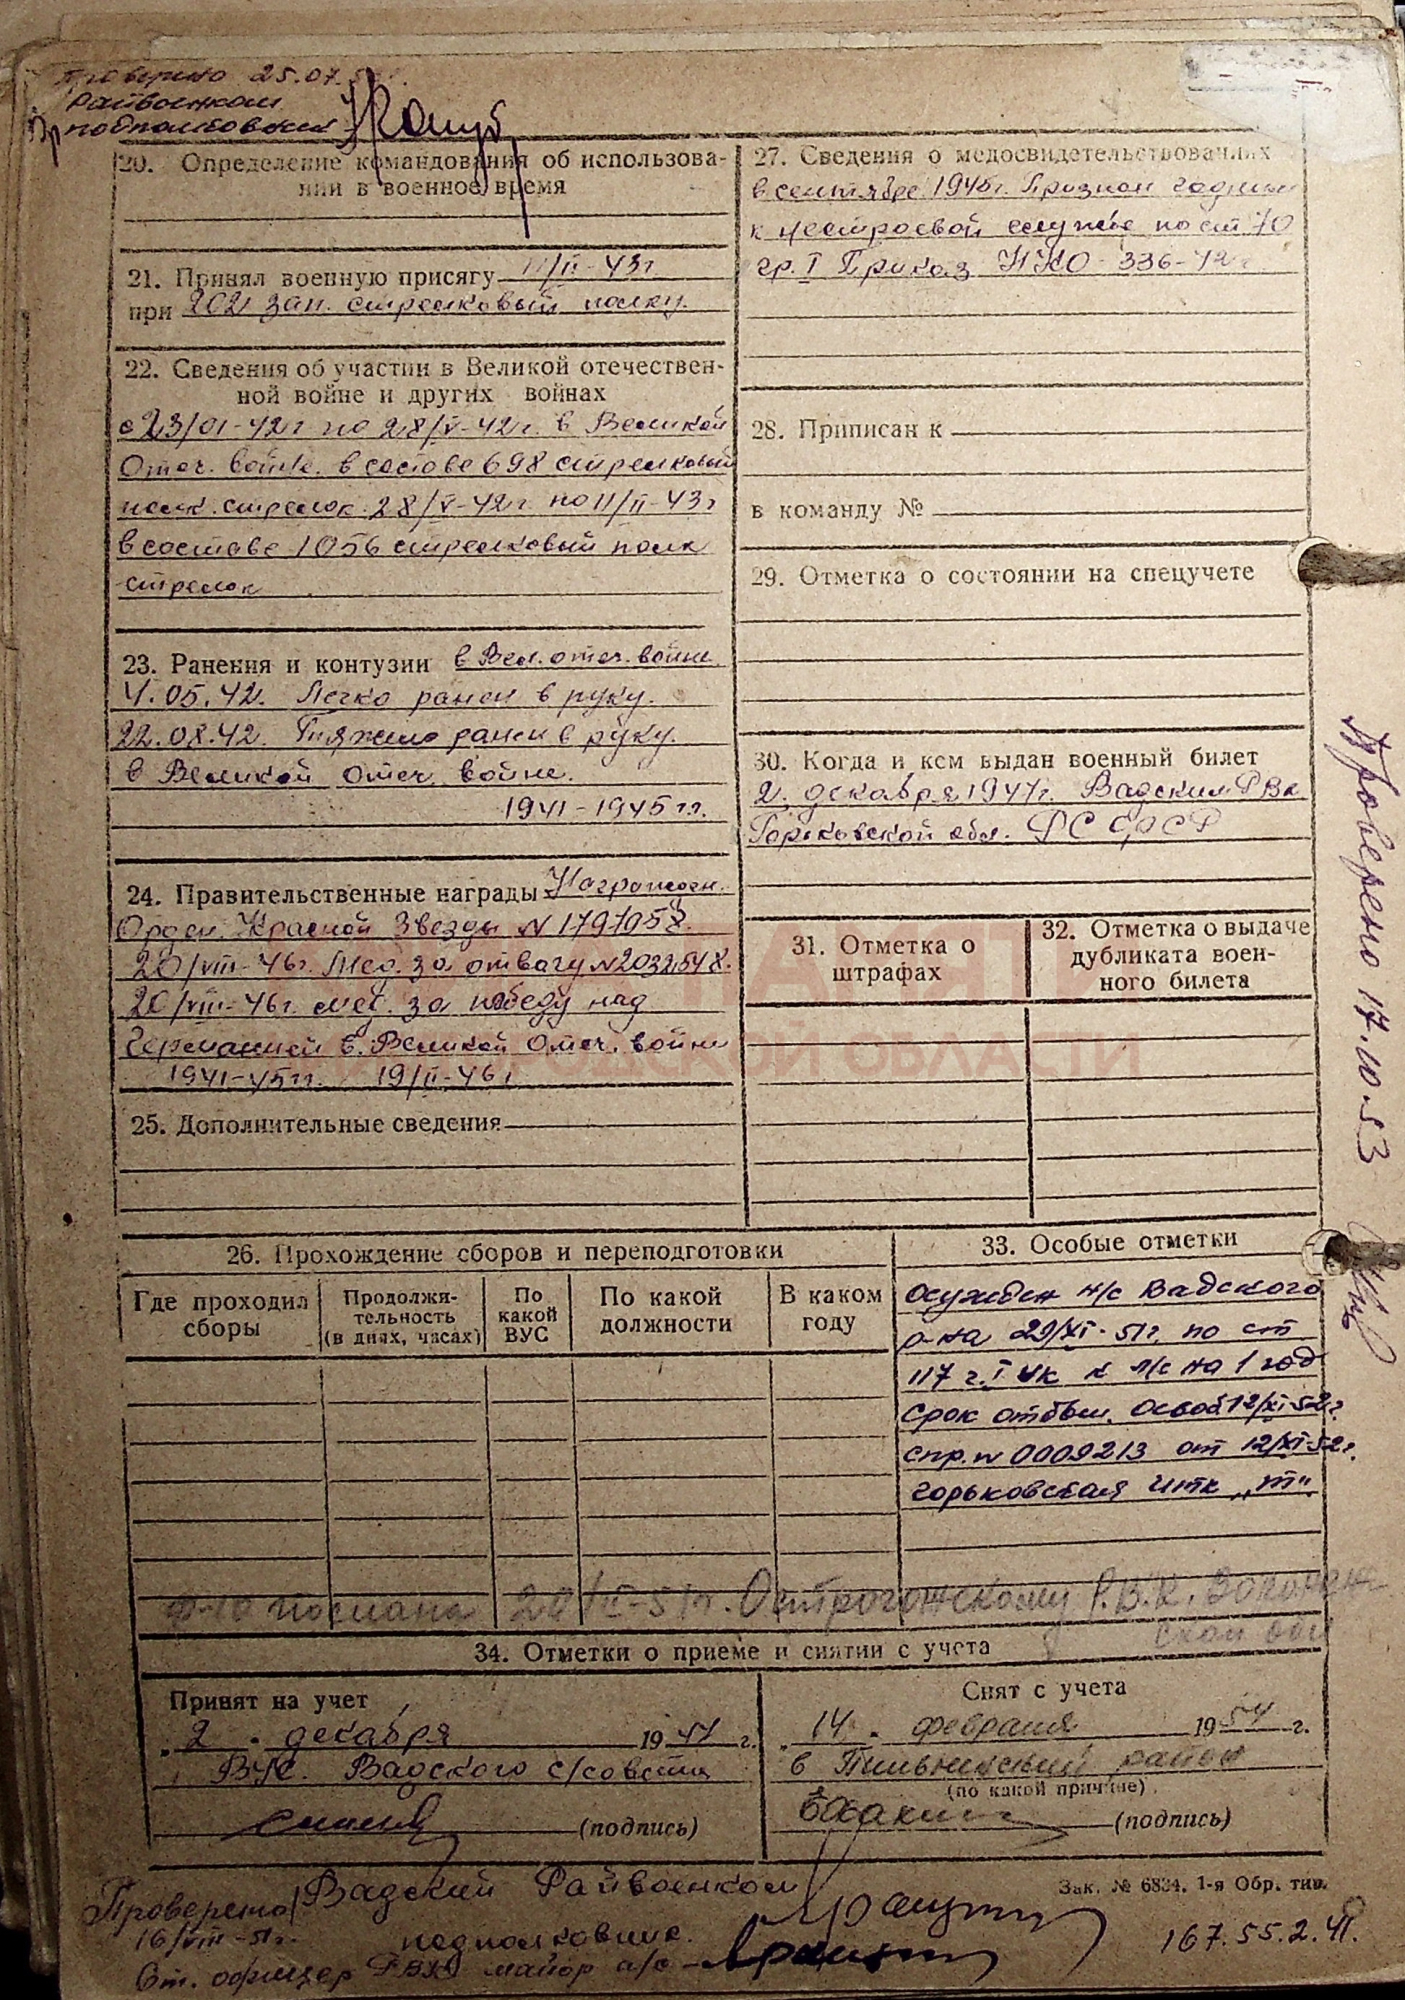 Проверено 25.07.5
Райвоенком
подполковник
20. Определение командования об использова-
нии в военное время
21. Принял военную присягу 11/II-43г
при 202 зап. стрелковый полку.
22. Сведения об участии в Великой отечествен-
ной войне и других войнах
с 23/01-42г по 28/V-42г. в Великой
Отеч. войне. в составе 698 стрелковый
полк. стрелок. 28/V-42г. по 11/II-43г
в составе 1056 стрелковый полк
стрелок
23. Ранения и контузии в Вел. отеч. войне
4.05.42. Легко ранен в руку.
22.08.42. Тяжело ранен в руку.
в Великой отеч. войне.
1941-1945 гг.
24. Правительственные награды Награжден.
Орден. Красной Звезды N 1791958.
20/VIII-46г. Мед. за отвагу N2032548.
20/VIII-46г. мед. за победу над
Германией в. Великой Отеч. войне
1941-45гг. 19/II-46г
25. Дополнительные сведения
27. Сведения о медосвидетельствованиях
в сентябре 1945г. Признан годным
к нестроевой службе по ст 70
гр. I Приказ НКО-336-42г
28. Приписан к
в команду №
29. Отметка о состоянии на спецучете
30. Когда и кем выдан военный билет
2. декабря 1947г. Вадским РВК
Горьковской обл. РСФСР
31. Отметка о
штрафах
32. Отметка о выдаче
дубликата воен-
ного билета
ПАМЯТИ
ГОРОДСКОЙ ОБЛАСТИ
Проверено 17.10.53
26. Прохождение сборов и переподготовки
Где проходил
сборы
Продолжи-
тельность
(в днях, часах)
По
какой
ВУС
По какой
должности
В каком
году
33. Особые отметки
Осужден н/с Вадского
р-на 29/XI-51г по ст
117 г. I УК к л/с на 1 год
срок отбыл. Освоб. 12/XI-52г.
спр. N 0009213 от 12/XI-52г.
горьковская итк „т"
Ф-10 послана 20/II-51г. Острогожскому Р.В.К. Воронеж
ской обл
34. Отметки о приеме и снятии с учета
Принят на учет
„2" декабря 1947 г.
ВУС. Вадского с/совета
(подпись)
Снят с учета
„14" февраля 1954 г.
в Пильнинский район
(по какой причине)
(подпись)
Проверено Вадский Райвоенком
16/VIII-51г. подполковник.
Ст. офицер РВК майор а/с
Зак. № 6834. 1-я Обр. тип.
167.55.2.41.